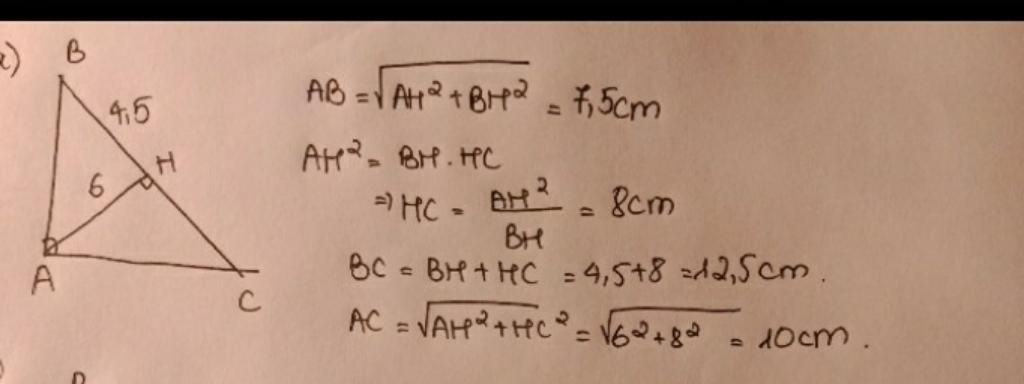 B
4,5
H
6
A
C
AB = √AH² + BH² = 7,5cm
AH² = BH . HC
⇒ HC = AH² / BH = 8cm
BC = BH + HC = 4,5+8 = 12,5cm .
AC = √AH² + HC² = √6²+8² = 10cm .